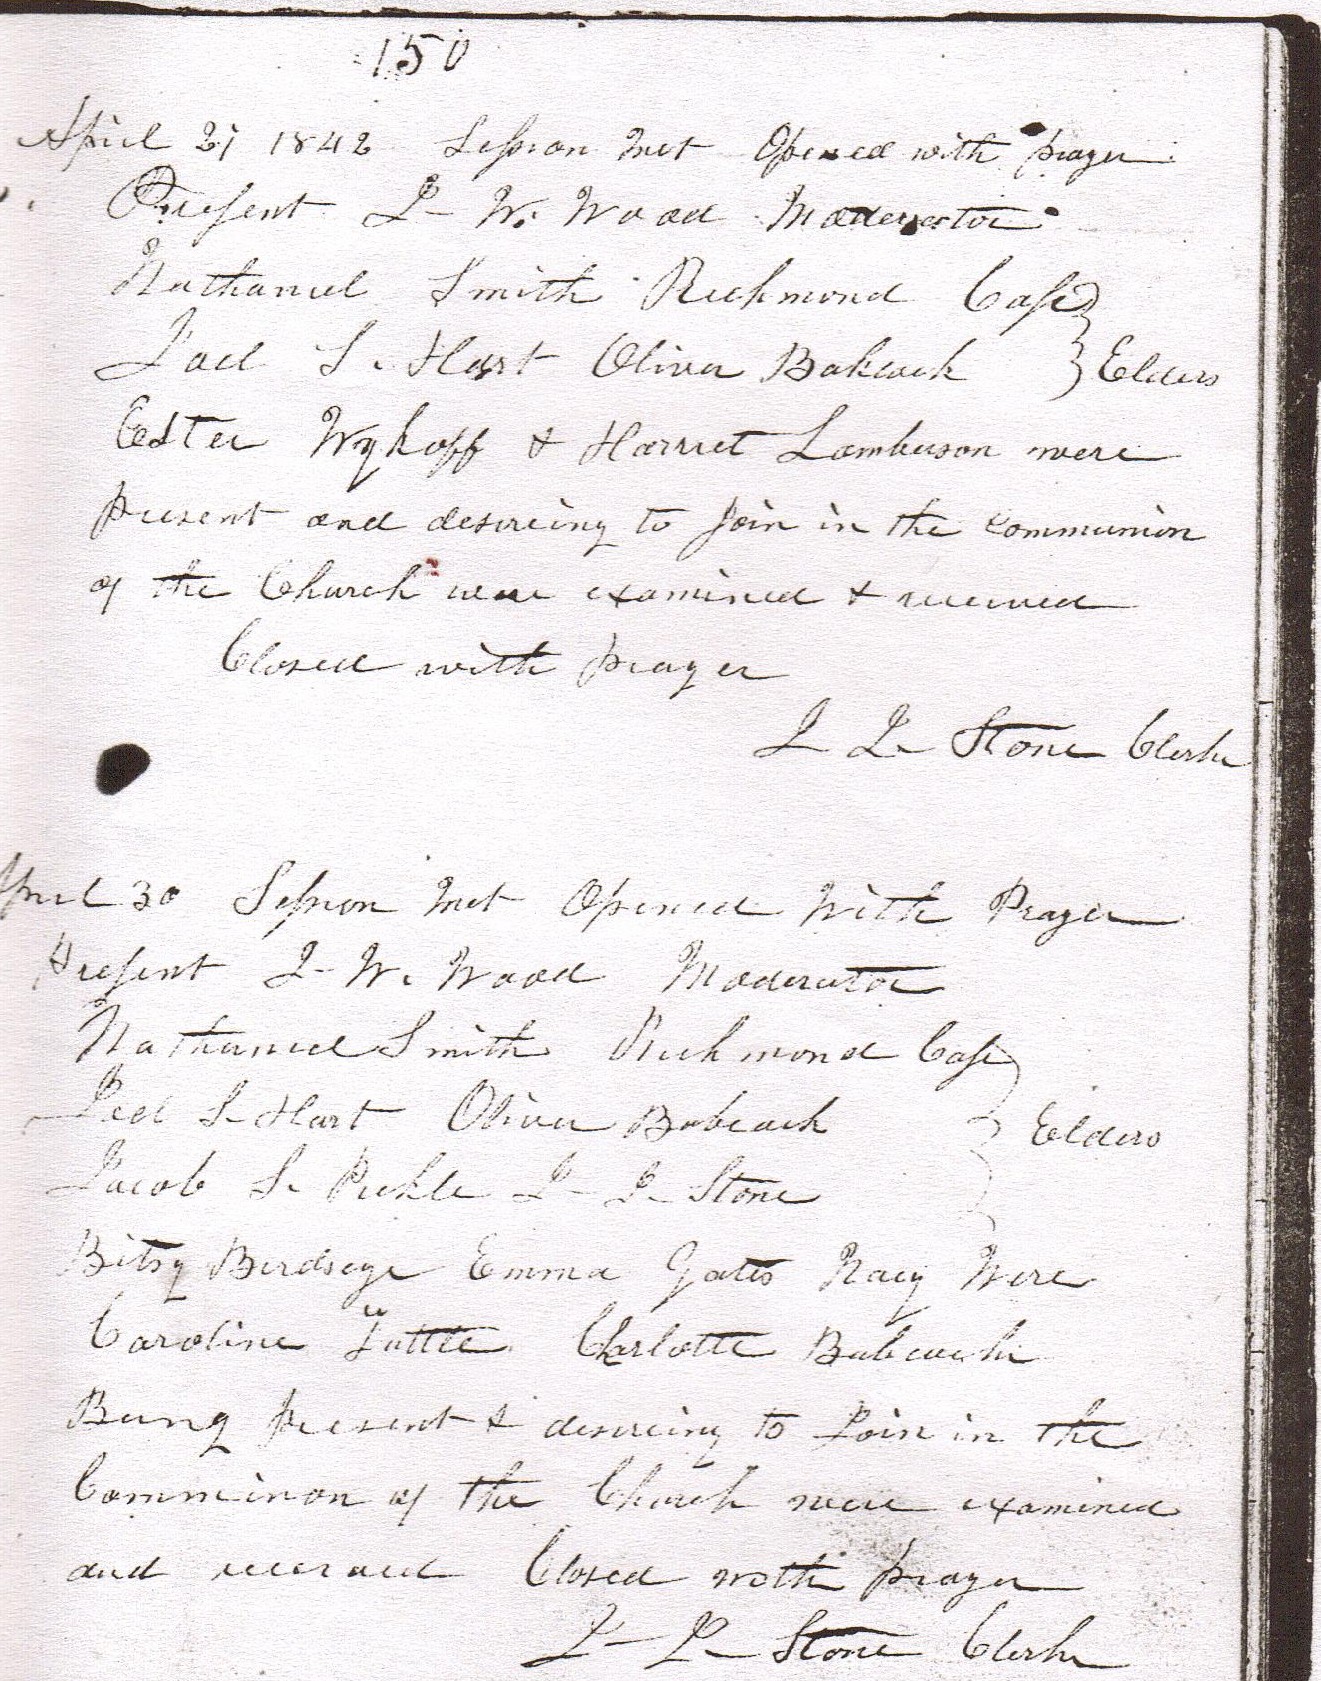 150
April 27 1842 Session met Opened with prayer
Present I- W. Wood Moderator
Nathaniel Smith Richmond Case
Joel S. Hart Oliver Babcock } Elders
Ester Wykoff & Harriet Lamberson were
present and desireing to join in the communion
of the Church were examined & received
Closed with prayer
L L Stone Clerk
April 30 Session met Opened With Prayer
Present I- W. Wood Moderator
Nathaniel Smith Richmond Case
Joel S- Hart Oliver Babcock } Elders
Jacob S. Pickle L- L- Stone
Bitsy Birdseye Emma Gates Were
Caroline Tuttle Charlotte Babcock
Being present & desireing to Join in the
Comminion of the Church were examined
and received Closed with prayer
L- L- Stone Clerk